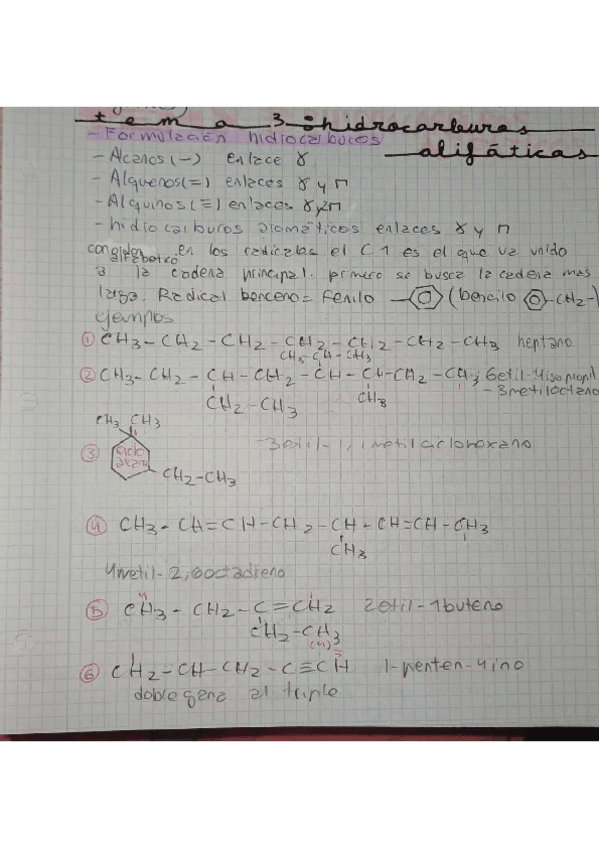 tema 3: hidrocarburos
- Formulación hidrocarburos
alifáticas
- Alcanos (-) enlace γ
- Alquenos (=) enlaces γ y π
- Alquinos (≡) enlaces γ y 2π
- hidrocarburos aromáticos enlaces γ y π
en los radicales el C1 es el que va unido
alfabético
a la cadena principal. primero se busca la cadena mas
larga. Radical benceno = Fenilo (bencilo -CH2-)
ejemplos
① CH3-CH2-CH2-CH2-CH2-CH2-CH3 heptano
CH3-CH-CH3
② CH3-CH2-CH-CH2-CH-CH-CH2-CH3; 6etil-4isopropil
-3metiloctano
CH2-CH3 CH3
CH3 CH3
③ ciclo -3etil-1,1metilciclohexano
CH2-CH3
④ CH3-CH=CH-CH2-CH-CH=CH-CH3
CH3
4metil-2,6octadieno
4 1
⑤ CH3-CH2-C=CH2 2etil-1buteno
CH2-CH3
(4)
1 5
⑥ CH2-CH-CH2-C≡CH 1-penten-4ino
doble gana al triple